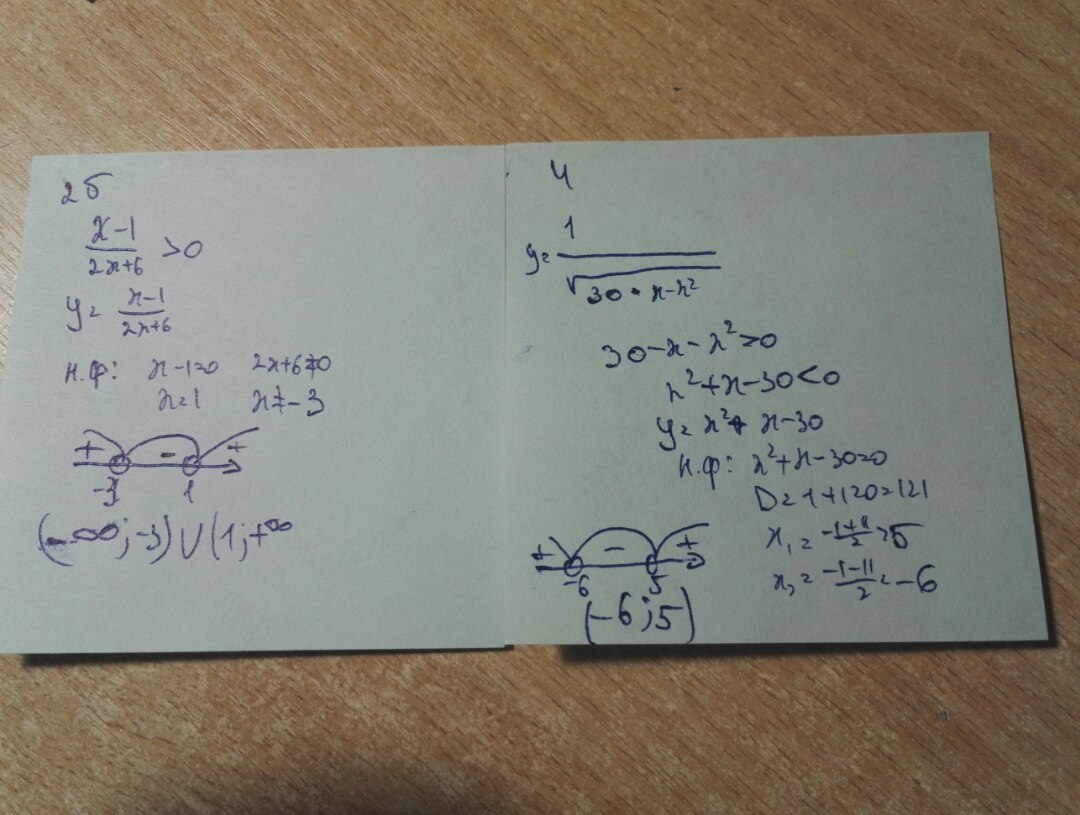 2б
x-1/2x+6 >0
y= x-1/2x+6
н.ф: x-1=0 2x+6≠0
x=1 x≠-3
+ - +
-3 1
(-∞;-3)∪(1;+∞
4
y= 1/√30-x-x²
30-x-x²>0
x²+x-30<0
y=x²+x-30
н.ф: x²+x-30=0
D=1+120=121
x₁=-1+11/2=5
x₂=-1-11/2=-6
+ - +
-6 5
(-6;5)